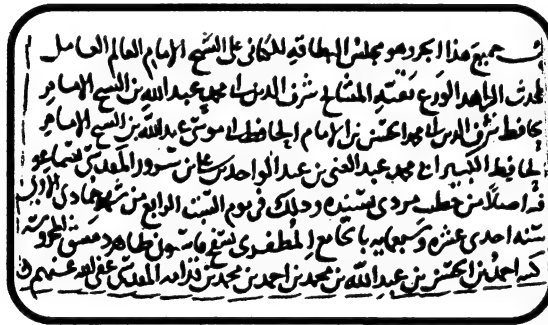 جميع هذا الجزء وهو مجلس البطاقة للكناني على الشيخ الإمام العالم العامل
المحدث الزاهد الورع بقية المشايخ شرف الدين أبي محمد عبد الله بن الشيخ الإمام
الحافظ شرف الدين أبي محمد الحسن بن الإمام الحافظ أبي موسى عبد الله بن الشيخ الإمام
الحافظ الكبير أبي محمد عبد الغني بن عبد الواحد بن علي بن سرور المقدسي بسماعه
فيه أصلا من خطيب مردى بسنده وذلك في يوم السبت الرابع من شهر جمادى الأولى
سنة إحدى عشرة وسبعمائة بالجامع المظفري بسفح قاسيون ظاهر دمشق المحروسة
كتبه أحمد بن الحسن بن عبد الله بن محمد بن أحمد بن محمد بن قدامة المقدسي عفى الله عنهم